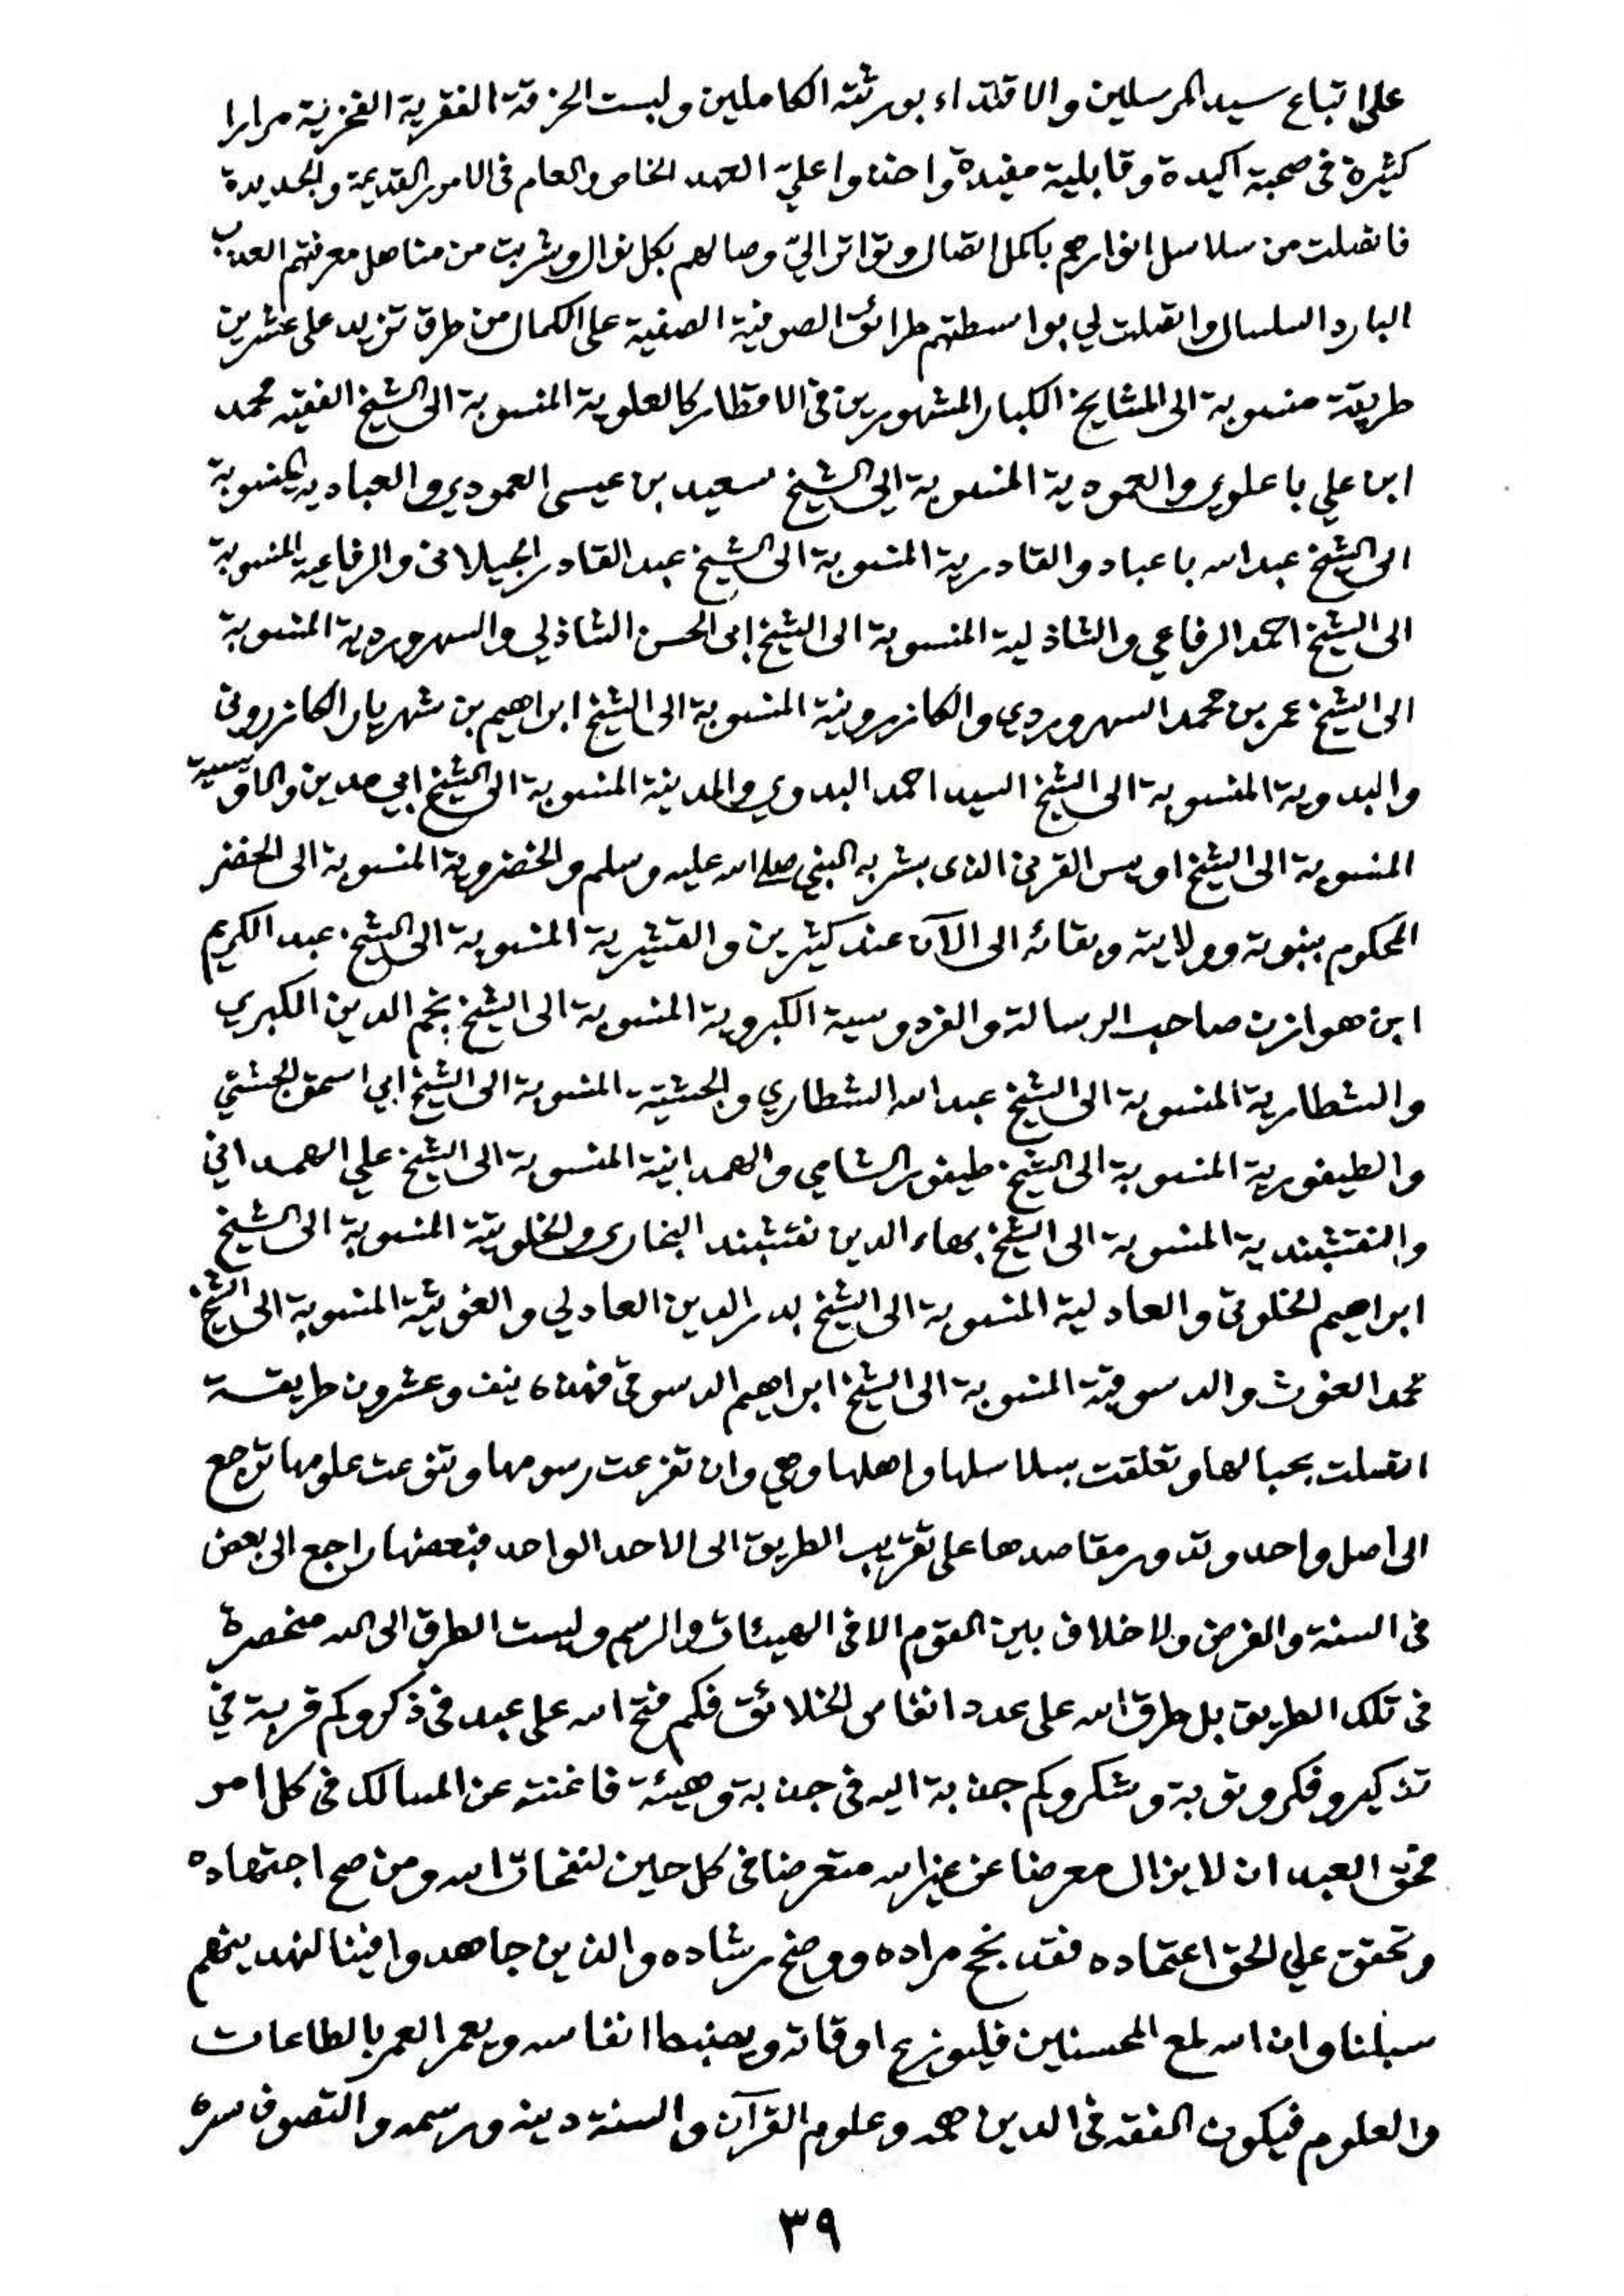 على اتباع سيد المرسلين والاقتداء بورثته الكاملين ولبست الخرقة الفقرية الفخرية مرارا
كثيرة في صحبة اكيدة وقابلية مفيدة واخذوا عليّ العهد الخاص والعام في الامور القديمة والجديدة
فاتصلت من سلاسل انوارهم باكمل اتصال وتواتر اليّ وصالهم بكل نوال وشربت من مناهل معرفتهم العذب
البارد السلسال واتصلت لي بواسطتهم طرائق الصوفية الصفية على الكمال من طرق تزيد على عشرين
طريقة منسوبة الى المشايخ الكبار المشهورين في الاقطار كالعلوية المنسوبة الى الشيخ الفقيه محمد
ابن علي باعلوي والعمودية المنسوبة الى الشيخ سعيد بن عيسى العمودي والعبادية المنسوبة
الى الشيخ عبد الله باعباد والقادرية المنسوبة الى الشيخ عبد القادر الجيلاني والرفاعية المنسوبة
الى الشيخ احمد الرفاعي والشاذلية المنسوبة الى الشيخ ابى الحسن الشاذلي والسهروردية المنسوبة
الى الشيخ عمر بن محمد السهروردي والكازرونية المنسوبة الى الشيخ ابراهيم بن شهريار الكازروني
والبدوية المنسوبة الى الشيخ السيد احمد البدوي والمدينية المنسوبة الى الشيخ ابي مدين والاويسية
المنسوبة الى الشيخ اويس القرني الذى بشر به النبي صلى الله عليه وسلم والخضروية المنسوبة الى الخضر
المحكوم بنبوته وولايته وبقائه الى الآن عند كثيرين والقشيرية المنسوبة الى الشيخ عبد الكريم
ابن هوازن صاحب الرسالة والفردوسية الكبروية المنسوبة الى الشيخ نجم الدين الكبري
والشطارية المنسوبة الى الشيخ عبد الله الشطاري والجشتية المنسوبة الى الشيخ ابي اسحق الجشتي
والطيفورية المنسوبة الى الشيخ طيفور الشامي والهمدانية المنسوبة الى الشيخ علي الهمداني
والنقشبندية المنسوبة الى الشيخ بهاء الدين نقشبند البخارى والخلوتية المنسوبة الى الشيخ
ابراهيم الخلوتي والعادلية المنسوبة الى الشيخ بدر الدين العادلي والغوثية المنسوبة الى الشيخ
محمد الغوث والدسوقية المنسوبة الى الشيخ ابراهيم الدسوقي فهذه نيف وعشرون طريقة
اتصلت بحبالها وتعلقت بسلاسلها واهلها وهي وان تفرعت رسومها وتنوعت علومها ترجع
الى اصل واحد وتدور مقاصدها على تقريب الطريق الى الاحد الواحد فبعضها راجع الى بعض
في السنة والفرض ولا خلاف بين القوم الا في الهيئات والرسم وليست الطرق الى الله منحصرة
في تلك الطريق بل طرق الله على عدد انفاس الخلائق فكم فتح الله على عبد في ذكر وكم قربة في
تذكير وفكر وتوبة وشكر وكم جذبة اليه في جذبة وهيئة فاغنته عن المسالك في كل امر
فحق العبد ان لا يزال معرضا عن غير الله متعرضا في كل حين لنفحات الله ومن صح اجتهاده
وتحقق علي الحق اعتماده فقد نجح مراده ووضح رشاده والذين جاهدوا فينا لنهدينهم
سبلنا وان الله لمع المحسنين فليوزع اوقاته ويضبط انفاسه ويعمر العمر بالطاعات
والعلوم فيكون الفقه في الدين همه وعلوم القرآن والسنة دينه ورسمه والتصوف سره
٣٩